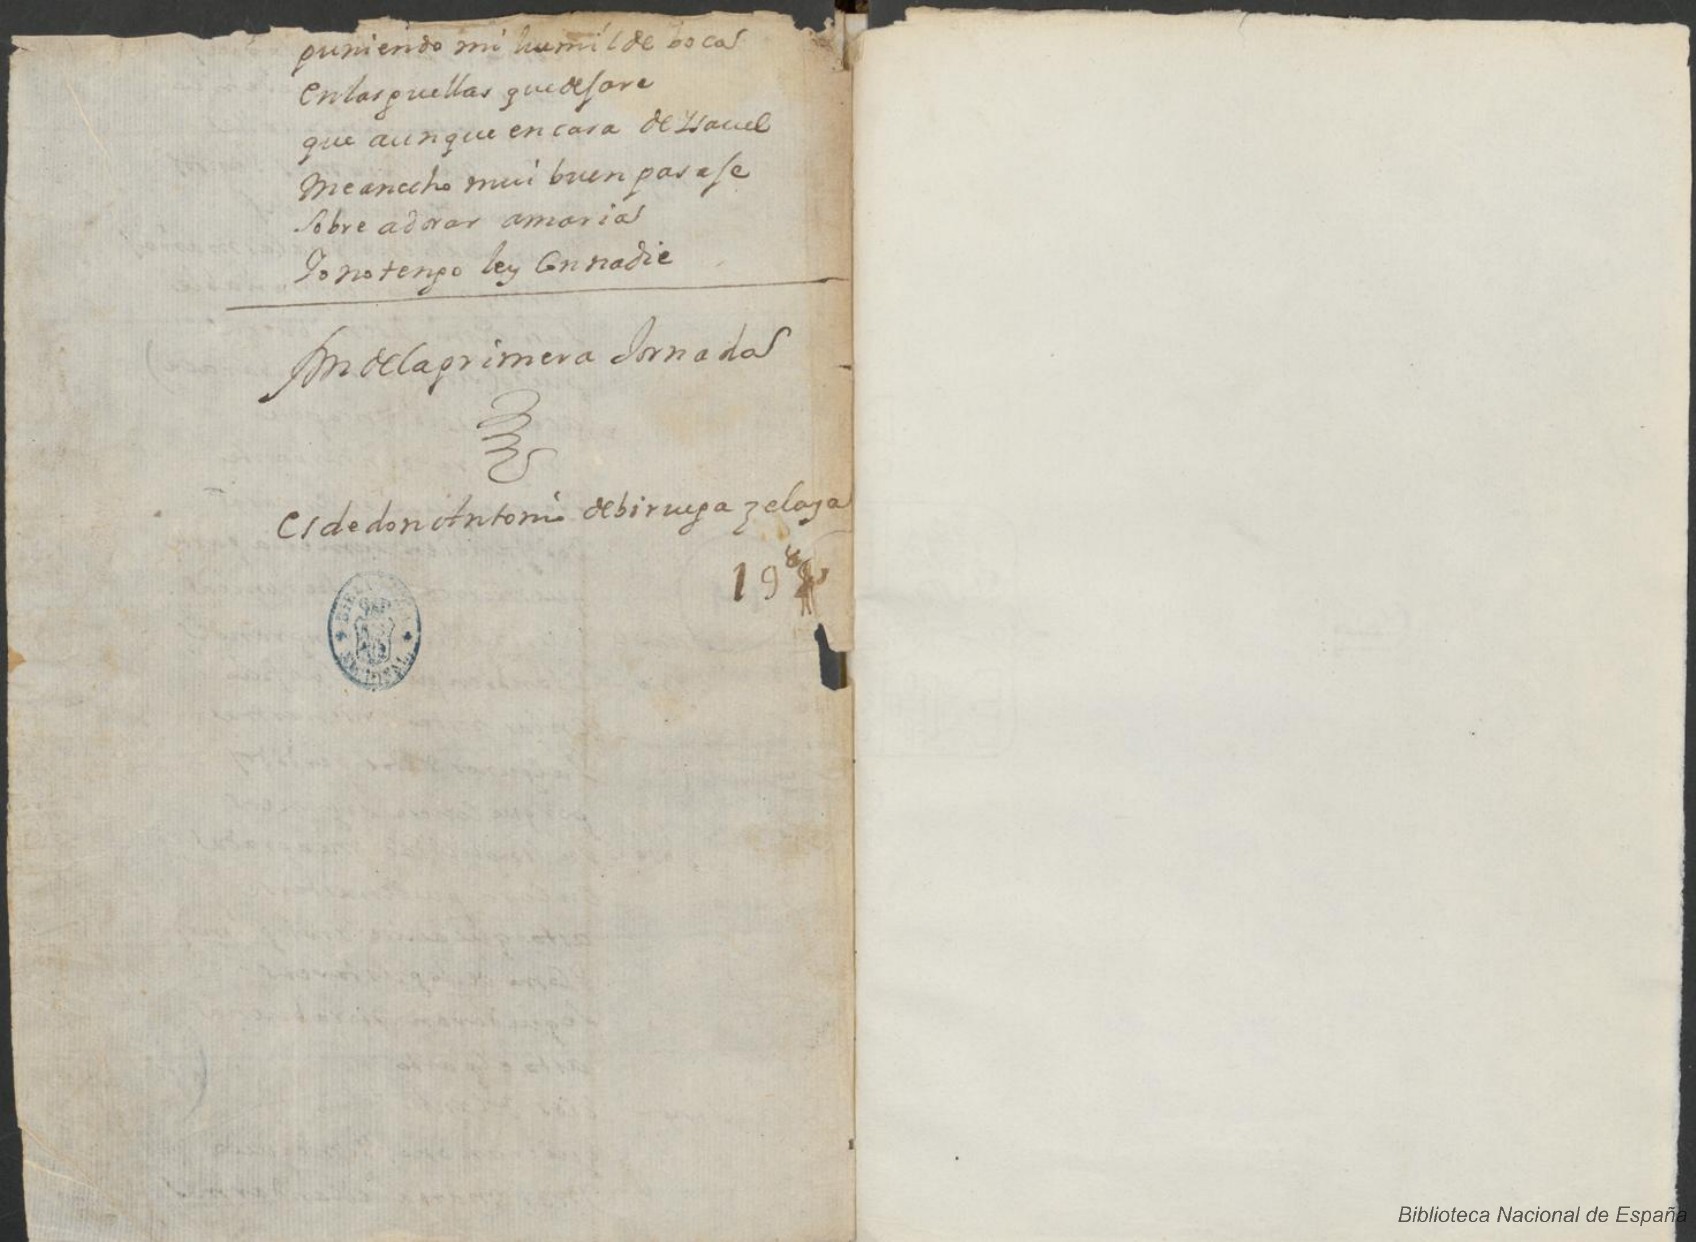 puniendo mi humilde boca
en las guellas que desare
que aunque en casa de Ysauel
me an echo mui buen pasase
sobre adorar a maria
Yo no tengo ley con nadie
fin de la primera Jornada
Es de don Antonio de biruega zelaya
19
BIBLIOTECA NACIONAL
Biblioteca Nacional de España